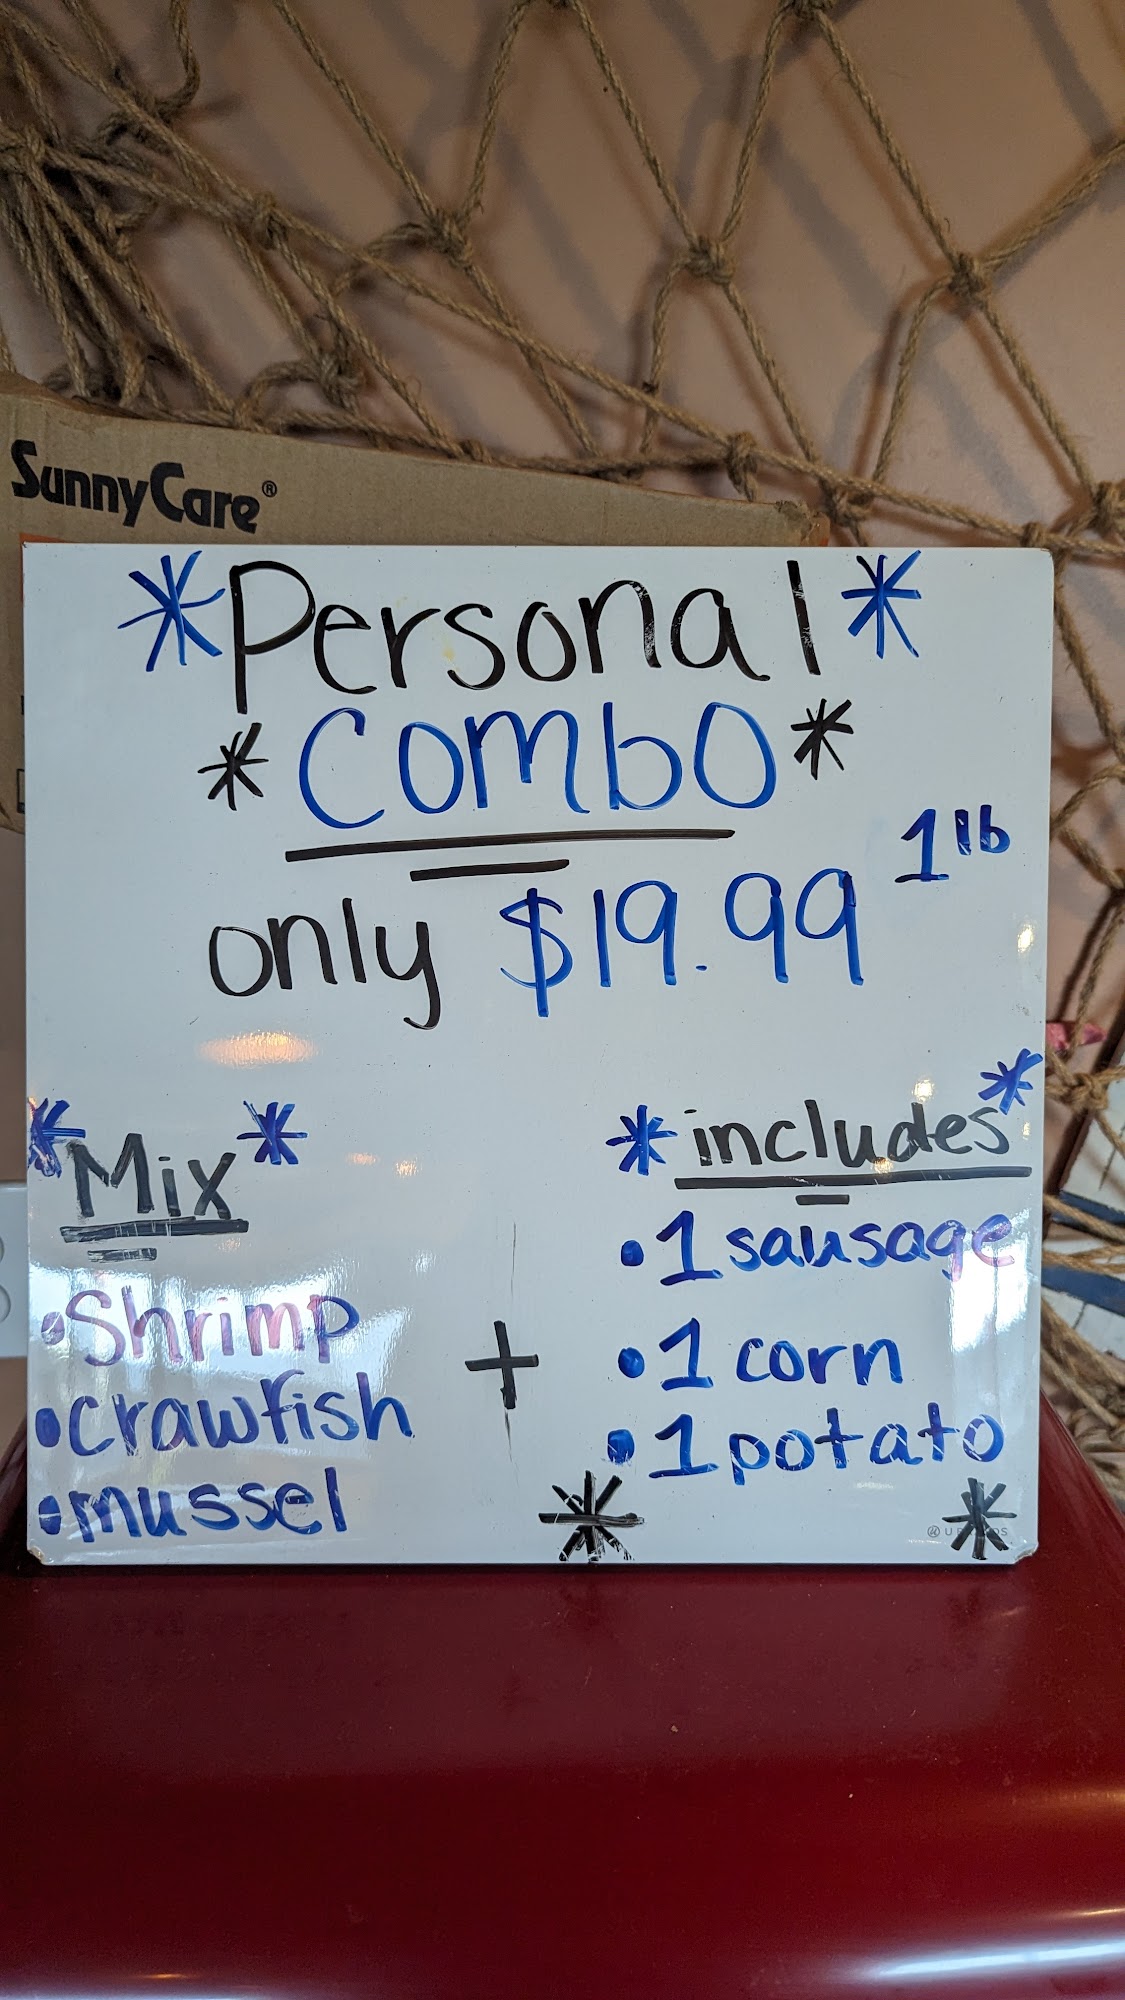 SunnyCare®
*Personal*
*Combo*
only $19.99 1lb
*Mix*
• Shrimp
• crawfish
• mussel
+
*includes*
• 1 sausage
• 1 corn
• 1 potato
* *